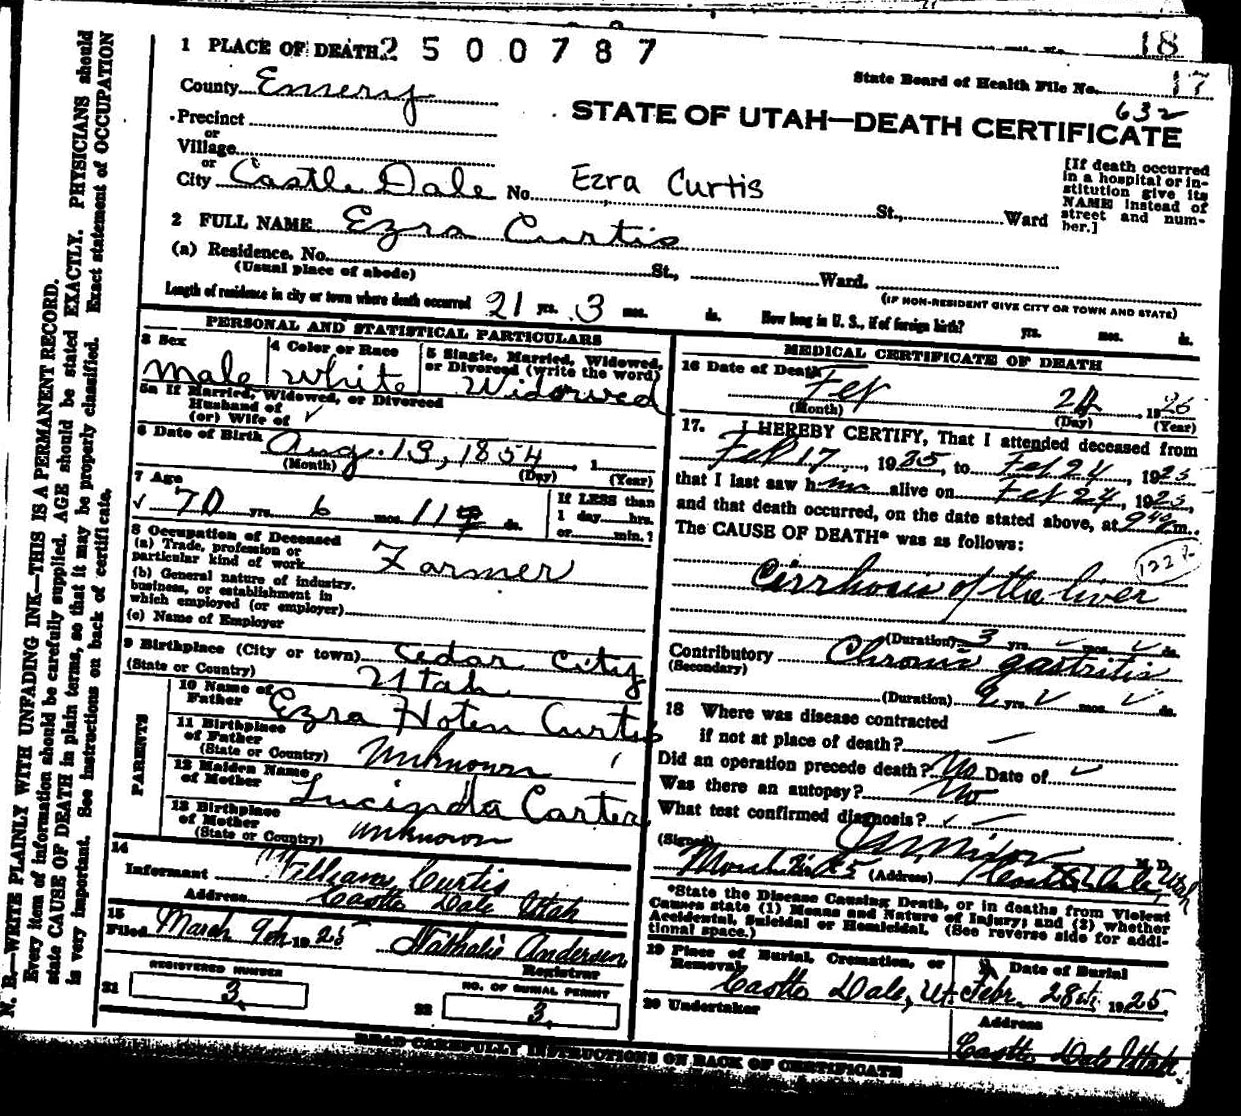 18
1 PLACE OF DEATH 2500787
State Board of Health File No. 17
County Emery
632
STATE OF UTAH—DEATH CERTIFICATE
Precinct
or
Village
or
City Castle Dale No. Ezra Curtis St., Ward
[If death occurred
in a hospital or in-
stitution give its
NAME instead of
street and num-
ber.]
2 FULL NAME Ezra Curtis
(a) Residence. No. St., Ward.
(Usual place of abode)
(IF NON-RESIDENT GIVE CITY OR TOWN AND STATE)
Length of residence in city or town where death occurred 21 yrs. 3 mos. ds. How long in U. S., if of foreign birth? yrs. mos. ds.
PERSONAL AND STATISTICAL PARTICULARS
3 Sex
Male
4 Color or Race
White
5 Single, Married, Widowed,
or Divorced (write the word)
Widowed
5a If Married, Widowed, or Divorced
Husband of
(or) Wife of ✓
6 Date of Birth Aug. 13, 1854, 1
(Month) (Day) (Year)
7 Age
✓ 70 yrs. 6 mos. 11 ds.
If LESS than
1 day hrs.
or min.?
8 Occupation of Deceased
(a) Trade, profession or
particular kind of work Farmer
(b) General nature of industry,
business, or establishment in
which employed (or employer)
(c) Name of Employer
9 Birthplace (City or town) Cedar City
(State or Country) Utah
PARENTS
10 Name of
Father Ezra Hoten Curtis
11 Birthplace
of Father
(State or Country) Unknown
12 Maiden Name
of Mother Lucinda Carter
13 Birthplace
of Mother
(State or Country) unknown
14
Informant William Curtis
Address Castle Dale Utah
15
Filed March 9th 1925 Nathalia Andersen
Registrar
REGISTERED NUMBER
21 3
NO. OF BURIAL PERMIT
22 3
MEDICAL CERTIFICATE OF DEATH
16 Date of Death
24, 1925
(Month) (Day) (Year)
17. I HEREBY CERTIFY, That I attended deceased from
Feb 17, 1925, to Feb 24, 1925
that I last saw him alive on Feb 24, 1925
and that death occurred, on the date stated above, at m.
The CAUSE OF DEATH* was as follows:
Cirrhosis of the liver
(Duration) 3 yrs. ✓ mos. ✓ ds.
Contributory Chronic gastritis
(Secondary)
(Duration) 2 yrs. ✓ mos. ✓ ds.
18 Where was disease contracted
if not at place of death? —
Did an operation precede death? No Date of ✓
Was there an autopsy? No
What test confirmed diagnosis? ✓ —
(Signed) M. D.
(Address) Castle Dale, Utah
*State the Disease Causing Death, or in deaths from Violent
Causes state (1) Means and Nature of Injury; and (2) whether
Accidental, Suicidal or Homicidal. (See reverse side for addi-
tional space.)
19 Place of Burial, Cremation, or
Removal
Castle Dale, Ut
Date of Burial
Febr. 28th, 1925
20 Undertaker
Address
Castle Dale Utah
READ CAREFULLY INSTRUCTIONS ON BACK OF CERTIFICATE
N. B.—WRITE PLAINLY WITH UNFADING INK—THIS IS A PERMANENT RECORD.
Every item of information should be carefully supplied. AGE should be stated EXACTLY. PHYSICIANS should
state CAUSE OF DEATH in plain terms, so that it may be properly classified. Exact statement of OCCUPATION
is very important. See instructions on back of certificate.